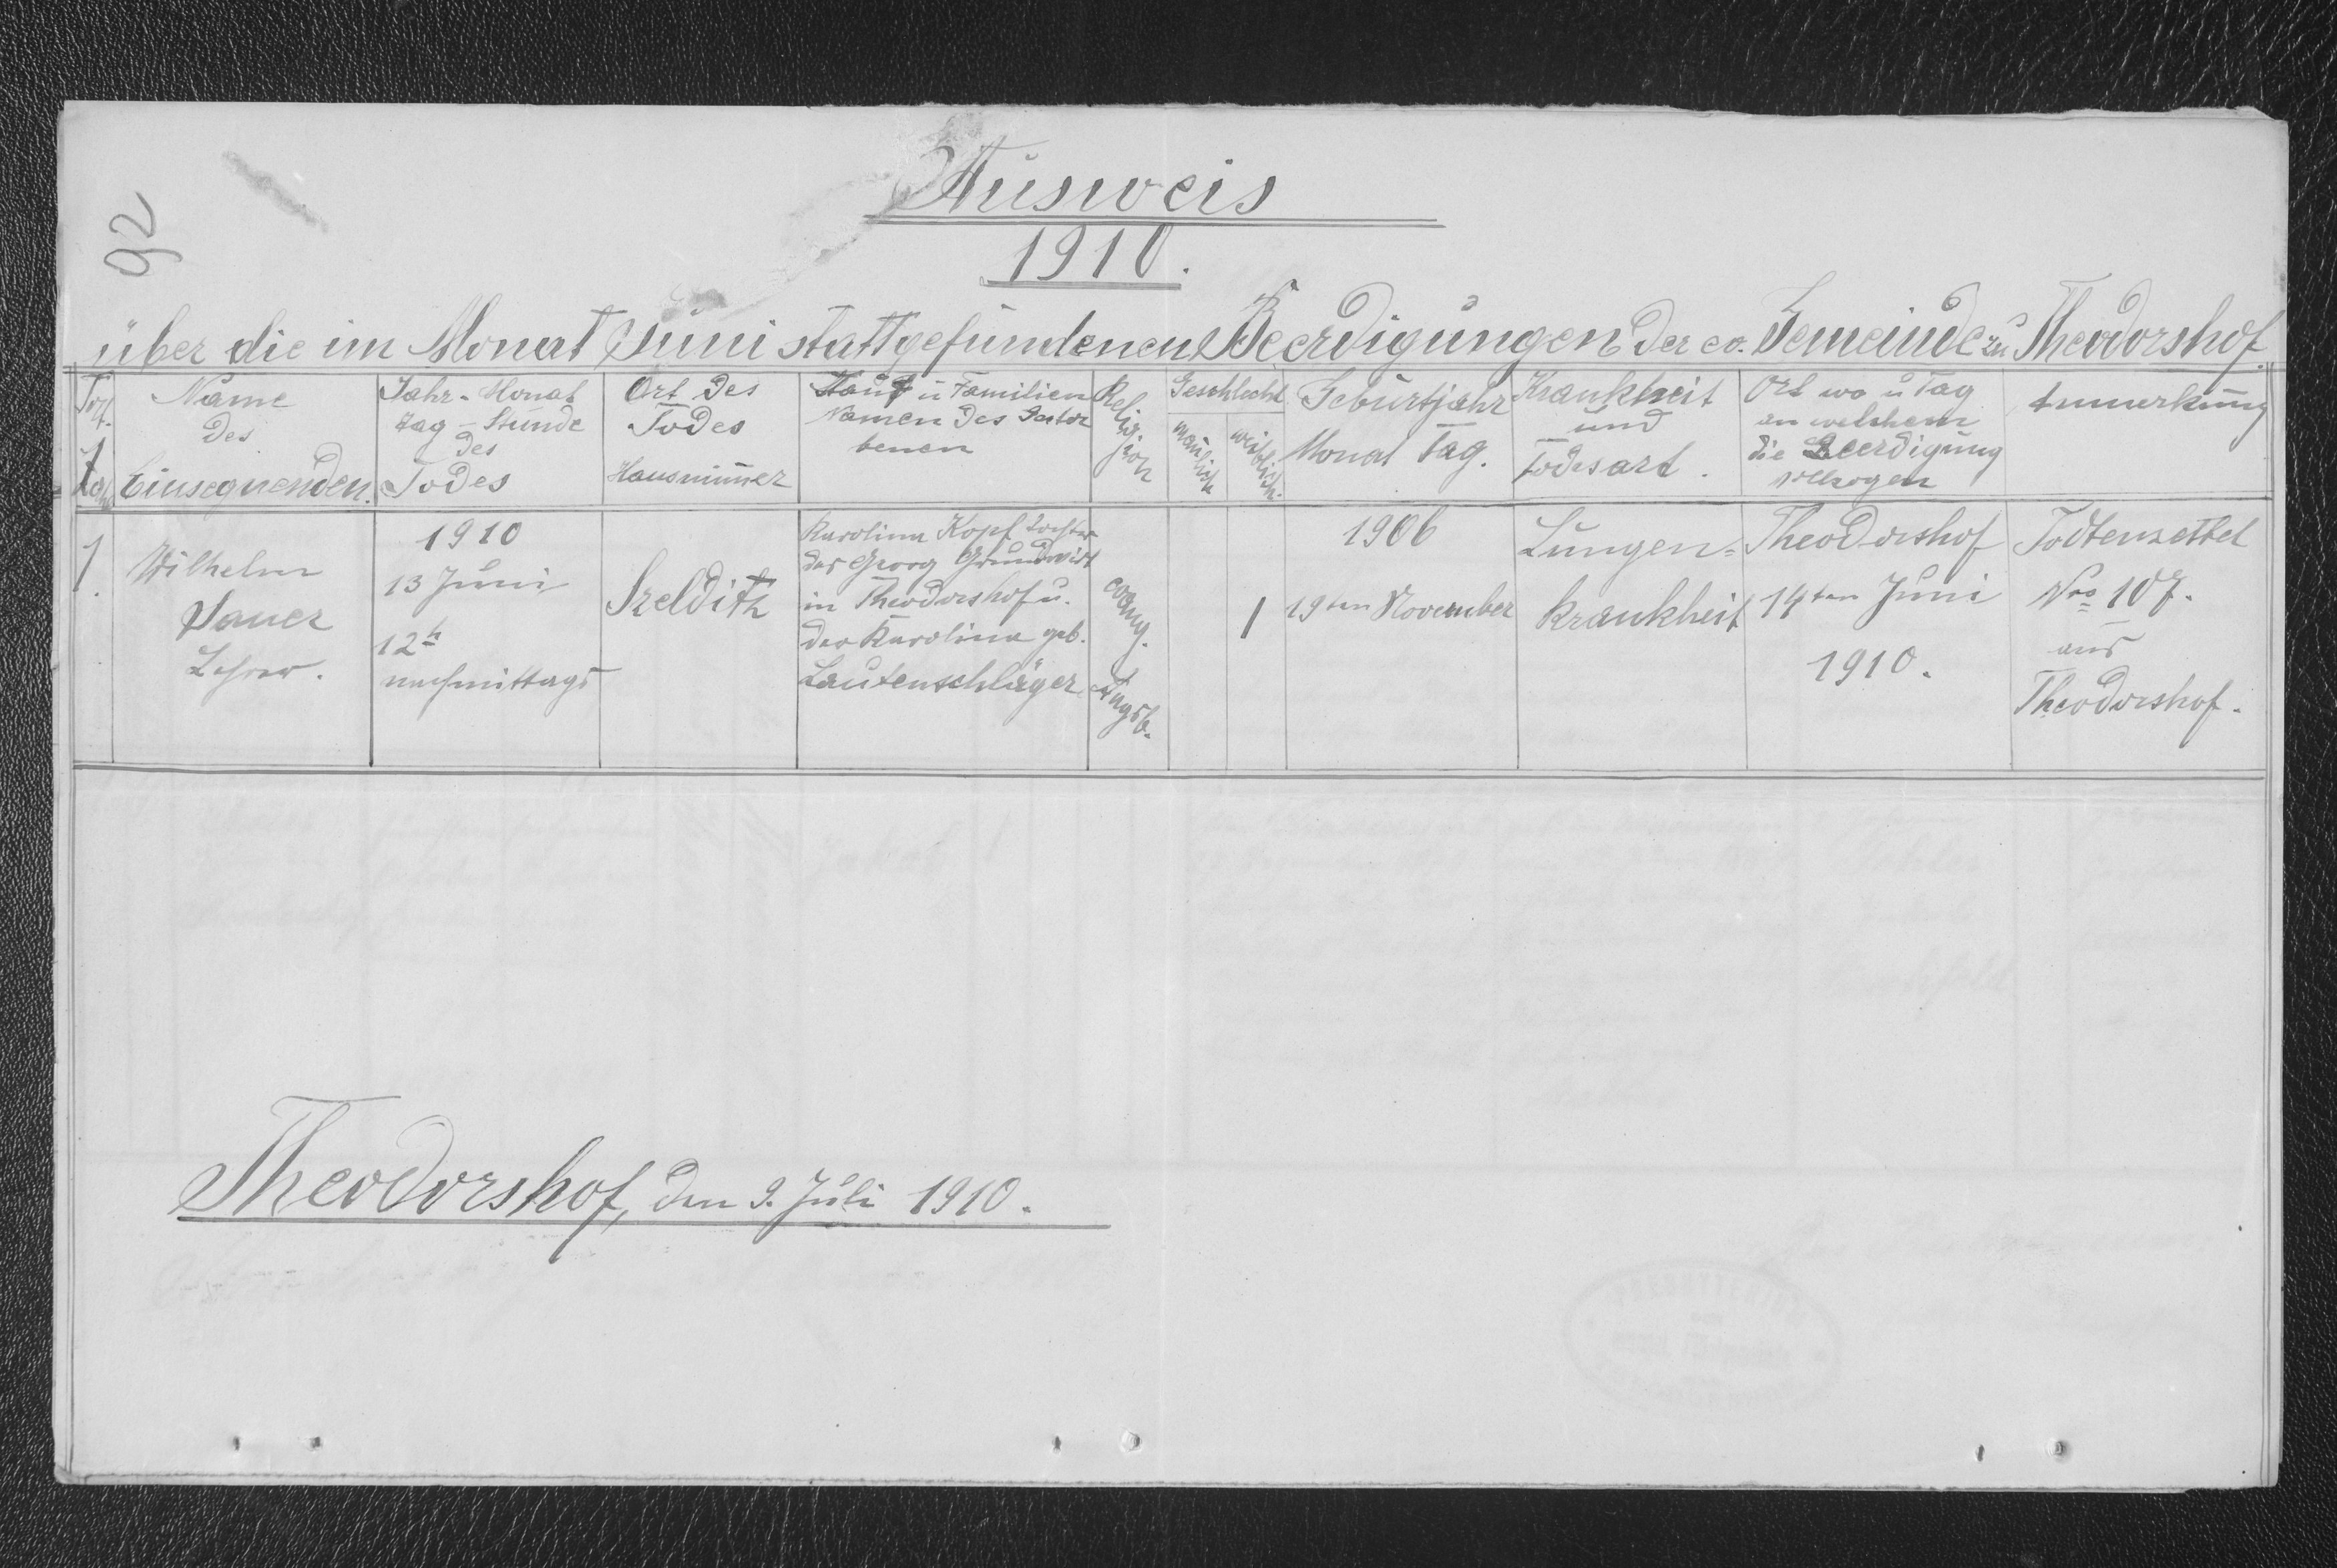 92
Ausweis
1910.
über die im Monat Juni stattgefundenen Beerdigungen der ev. Gemeinde zu Theodorshof.
Name
des
Einsegnenden.
Jahr - Monat
Tag - Stunde
des
Todes
Ort des
Todes
Hausnum̅er
Tauf u Familien
Namen des
benen
Religion
Geschlecht
weiblich.
Geburtjahr
Monat Tag.
Krankheit
und
Todesart.
Ort wo u Tag
an welchem
die Beerdigung
vollzogen
Anmerkung
1.
Wilhelm
Sauer
Lehrer.
1910
13 Juni
12h
nachmittags
Karolina Kopf Tochter
des Georg Grundwirt
in Theodorshof u.
der Karolina geb.
Lautenschläger
evang.
Augsb.
1
1906
19ten November
Lungen=
krankheit
Theodorshof
14ten Juni
1910.
Todtenzettel
Nro 107.
aus
Theodorshof.
Theodorshof, den 9. Juli 1910.